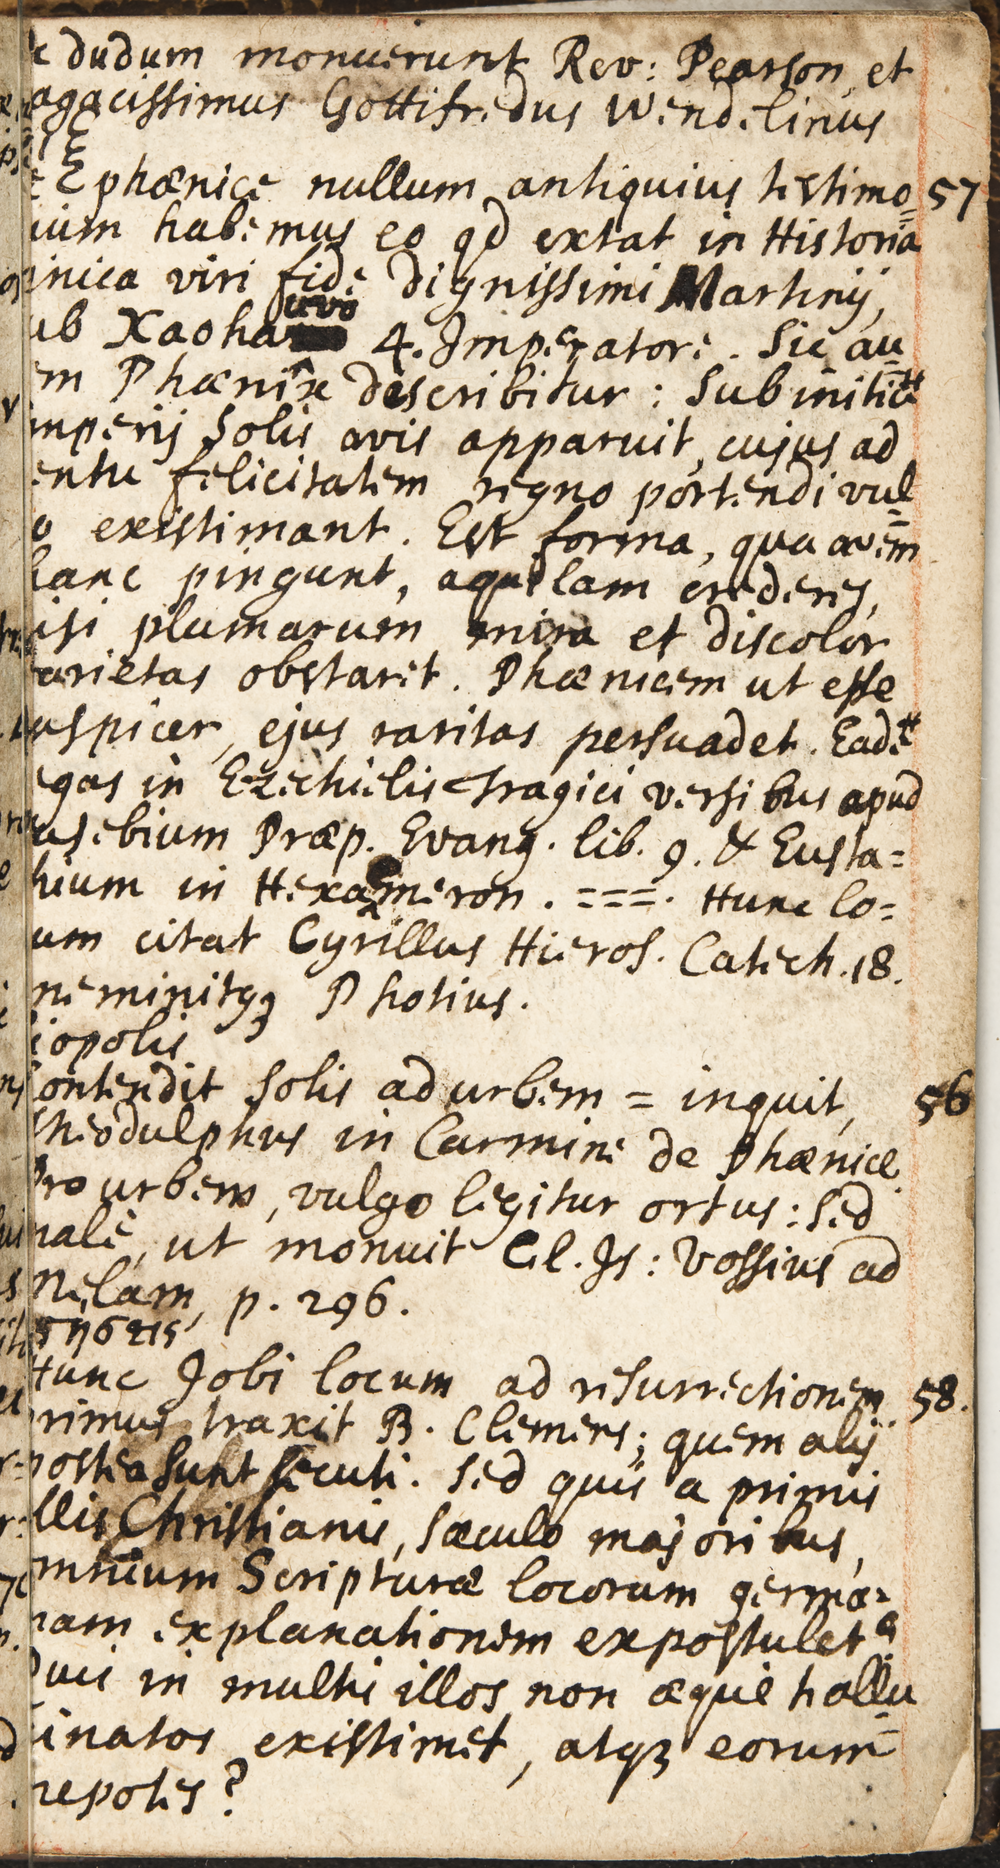 dudum monuerunt Rev: Pearson, et
agacissimus Gottifredus Wendelinus
ξ
phœnice nullum antiquius testimo= 57
ium habemus eo qd extat in Historia
inica viri fide dignissimi Martinij,
uvo
ub Xaoha 4. Imperatore. Sic au=
em Phœnix describitur: Sub initiu
mperij Solis avis apparuit, cujus ad
entu felicitatem regno portendi vul=
o existimant. Est forma, qua avem
hanc pingunt, aquilam crederes,
isi plumarum mira et discolor
arietas obstaret. Phœnicem ut esse
uspicer, ejus raritas persuadet. Eade
egas in Ezechielis Tragici versibus apud
usebium Præp. Evang. lib. 9. & Eusta=
hium in Hexameron. ===. Hunc lo=
um citat Cyrillus Hieros. Catech. 18.
meminitqꝫ Photius.
iopolis
Contendit Solis ad urbem = inquit, 56
Theodulphus in Carmine de Phœnice.
Pro urbem, vulgo legitur ortus: Sed
male, ut monuit Cl. Is: Vossius ad
Melam, p. 296.
Hunc Jobi locum ad resurrectionem 58.
rimus traxit B. Clemens; quem alij
postea sunt secuti. Sed quis a primis
llis Christianis, sæculo majoribus,
mnium Scripturæ locorum germa=
nam explanationem expostulet?
Quis in multis illos non æque hallu=
cinatos existimet, atqꝫ eorum
nepotes?